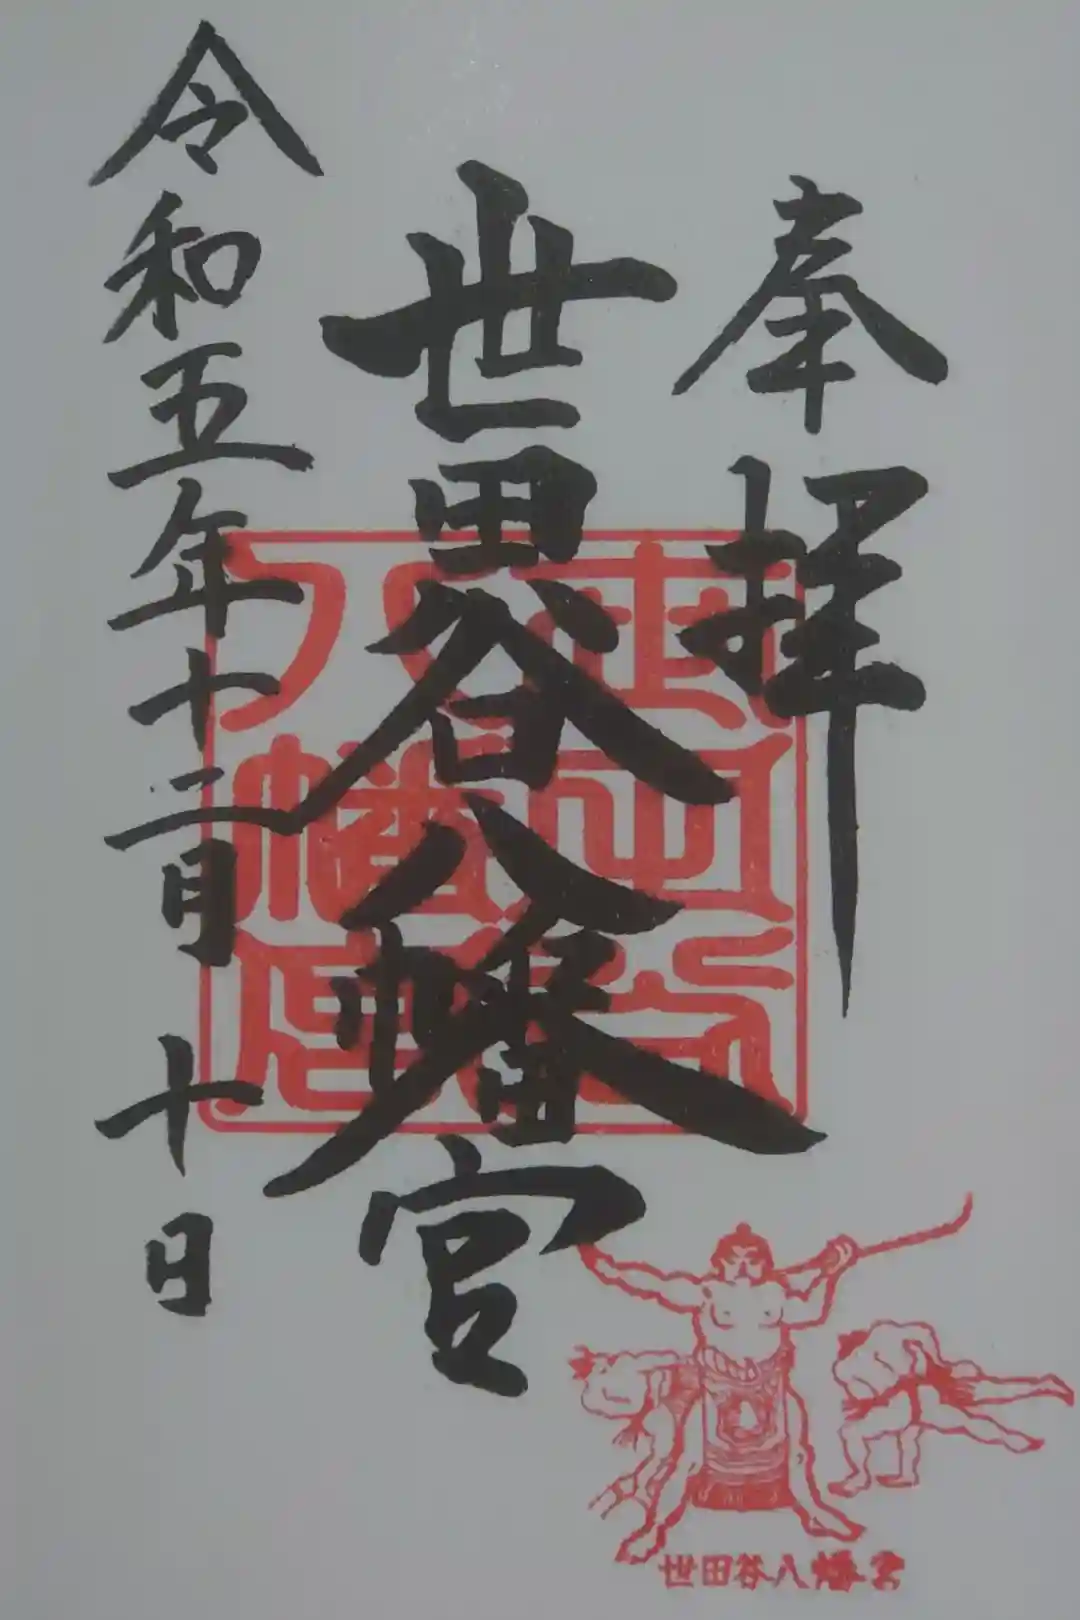 奉拝
世田谷八幡宮
世田谷八幡宮
令和五年十二月十日
世田谷八幡宮